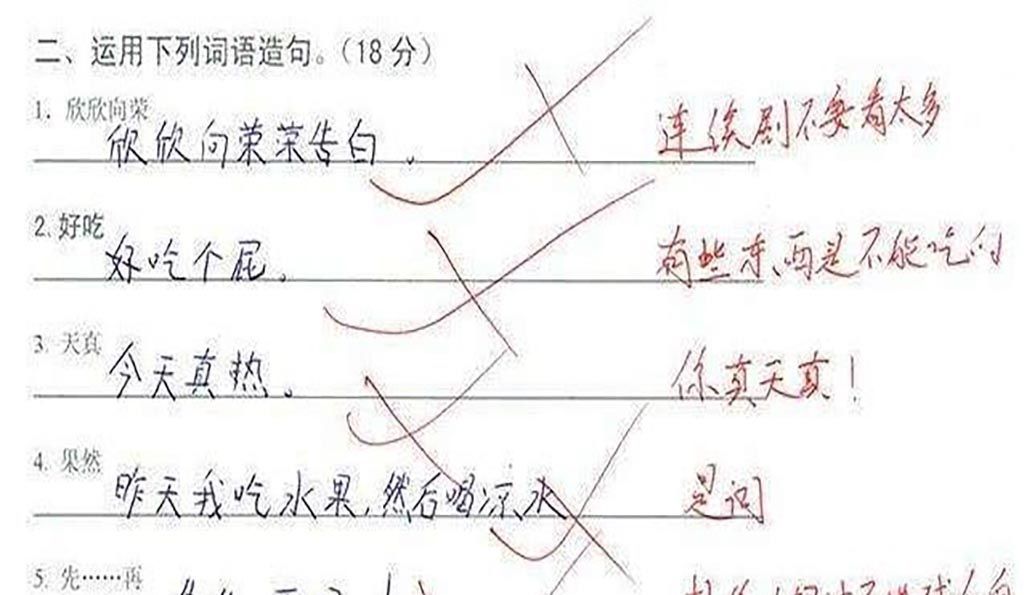 二、运用下列词语造句。(18分)
1. 欣欣向荣
欣欣向荣荣告白。 连续剧不要看太多
2. 好吃
好吃个屁。 有些东西是不能吃的
3. 天真
今天真热。 你真天真!
4. 果然
昨天我吃水果,然后喝凉水 是词
5. 先……再